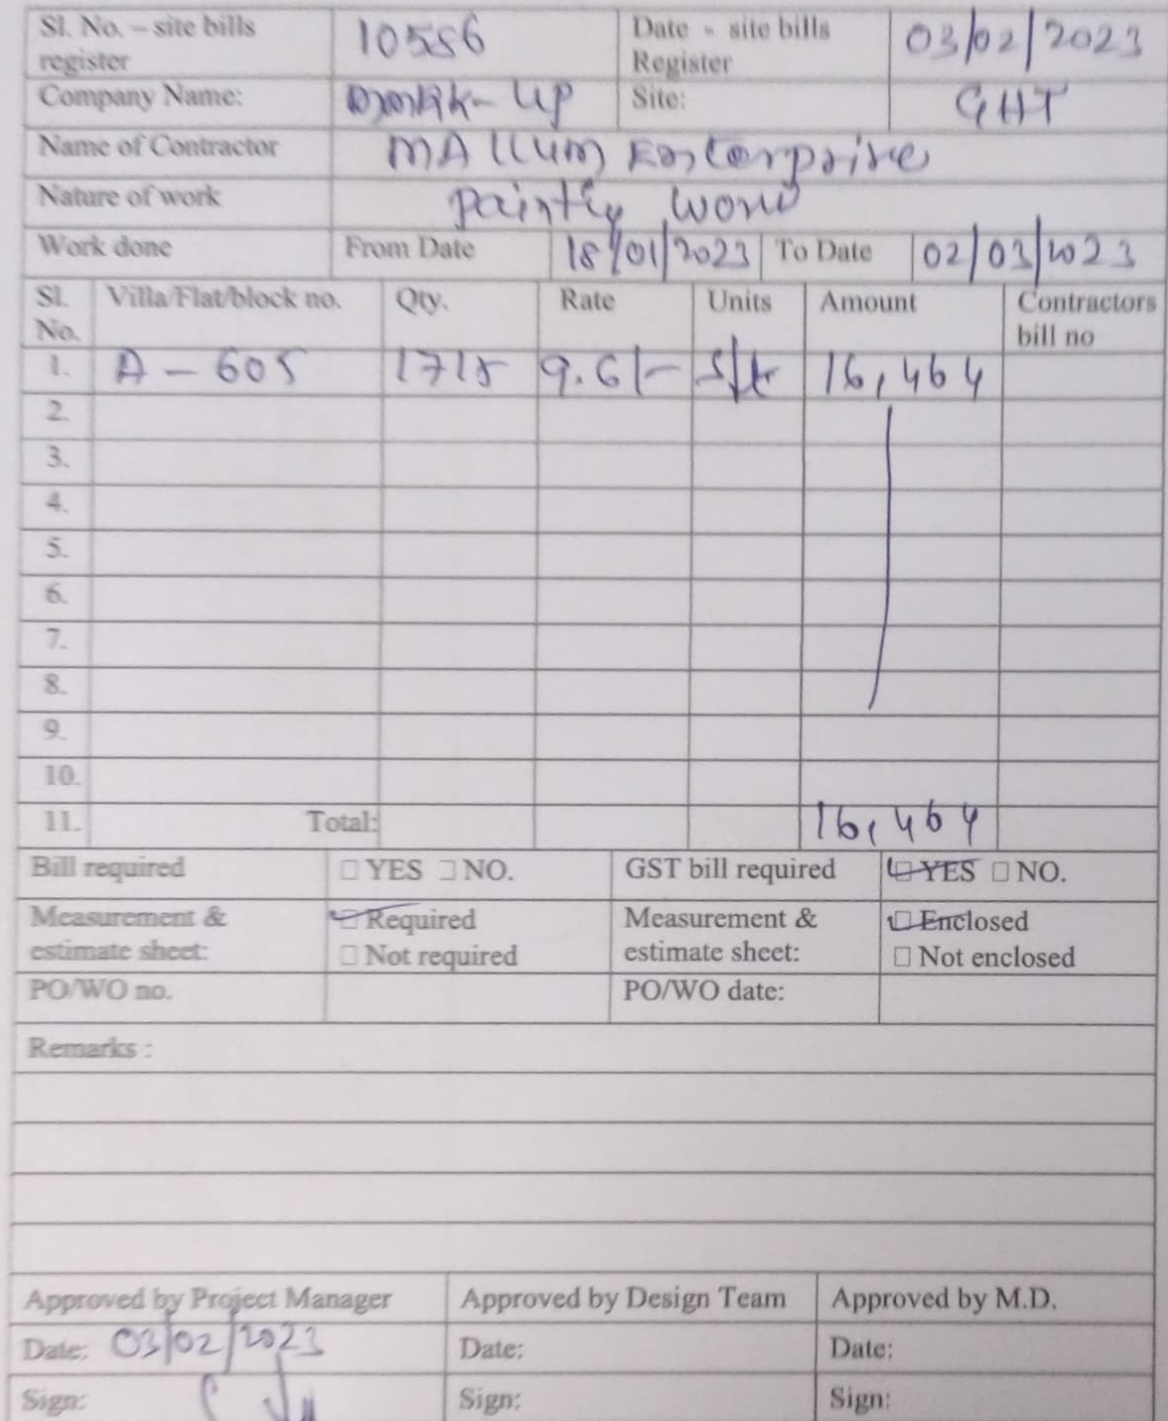 Sl. No. – site bills register 10586 Date - site bills Register 03/02/2023
Company Name: Site: GHT
Name of Contractor MAllum Enterprise
Nature of work painting work
Work done From Date 18/01/2023 To Date 02/03/2023
Sl. No. Villa/Flat/block no. Qty. Rate Units Amount Contractors bill no
1. A – 605 1715 9.6/- sft 16,464
2.
3.
4.
5.
6.
7.
8.
9.
10.
11. Total: 16,464
Bill required □ YES □ NO. GST bill required □ YES □ NO.
Measurement & estimate sheet: □ Required □ Not required Measurement & estimate sheet: □ Enclosed □ Not enclosed
PO/WO no. PO/WO date:
Remarks :
Approved by Project Manager Approved by Design Team Approved by M.D.
Date: 03/02/2023 Date: Date:
Sign: Sign: Sign: